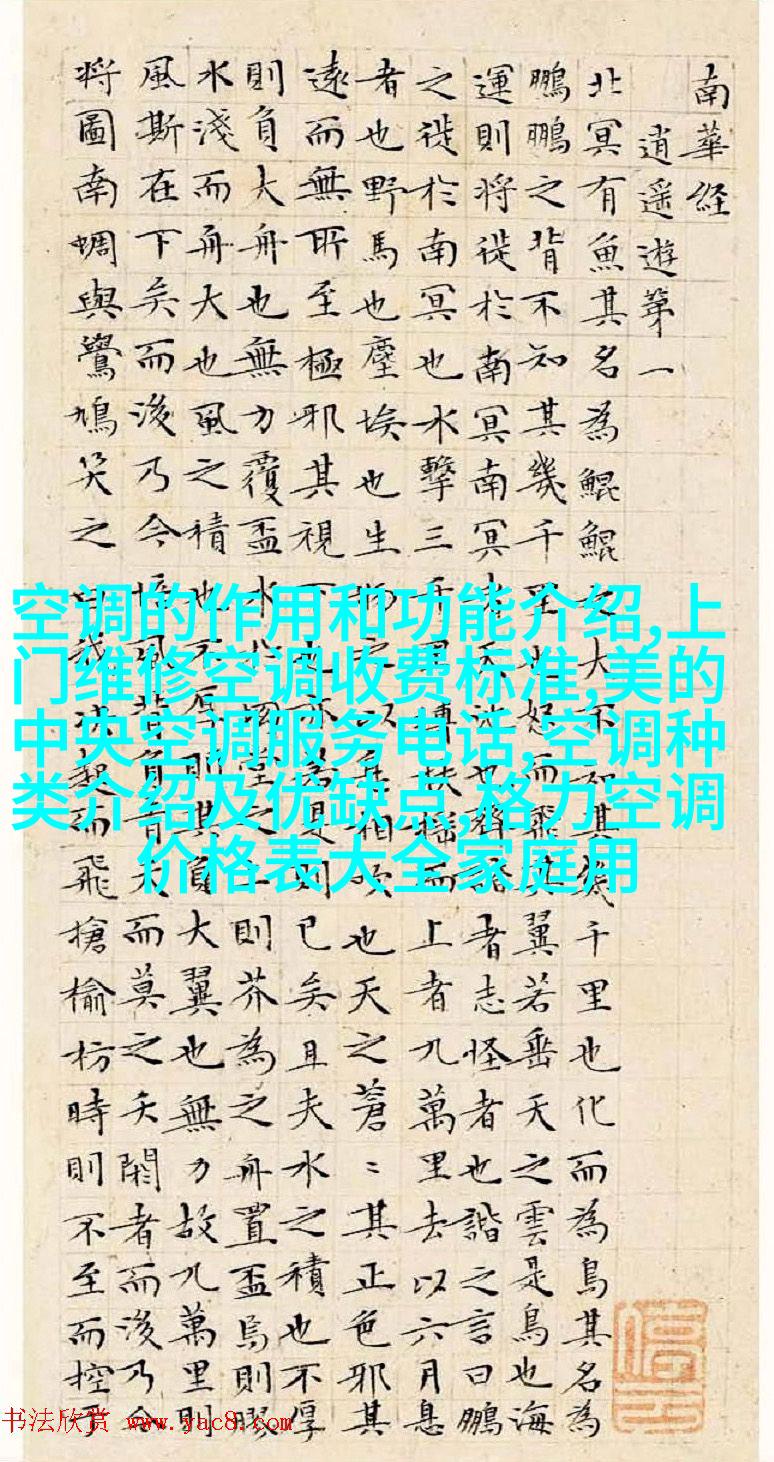 南華経
逍遥遊第一
北冥有魚其名為鯤鯤之大不知其幾千里也化而為鳥其名為
鵬鵬之背不知其幾千里也怒而飛其翼若垂天之雲是鳥也海
運則将徙於南冥南冥者天池也齊諧者志怪者也諧之言曰鵬
之徙於南冥也水擊三千里摶扶搖而上者九萬里去以六月息
者也野馬也塵埃也生物之以息相吹也天之蒼〻其正色邪其
遠而無所至極邪其視下也亦若是則已矣且夫水之積也不厚
則負大舟也無力覆盃水於坳堂之上則芥為之舟置盃焉則膠
水淺而舟大也風之積也不厚則其負大翼也無力故九萬里則
風斯在下矣而後乃今培風背負青天而莫之夭閼者而後乃今
将圖南蜩與鷽鳩笑之曰我決起而飛搶榆枋時則不至而控於
空调的作用和功能介绍,上
门维修空调收费标准,美的
中央空调服务电话,空调种
类介绍及优缺点,格力空调
价格表大全家庭用
书法欣赏 www.yac8.com